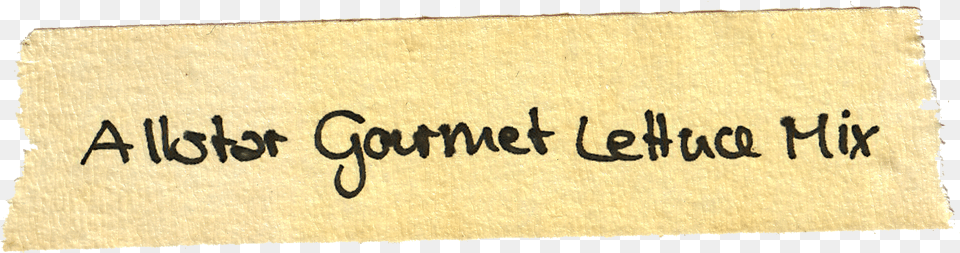 Allstar Gourmet Lettuce Mix